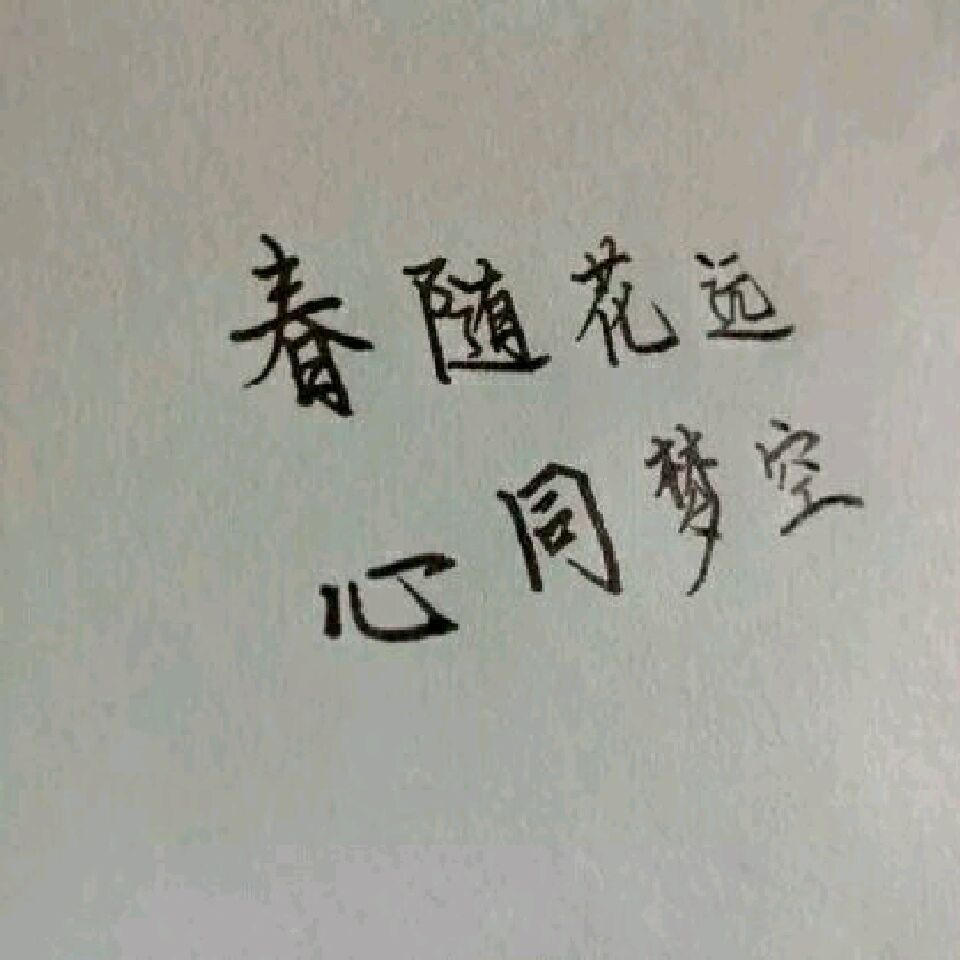 春随花远
心同梦空